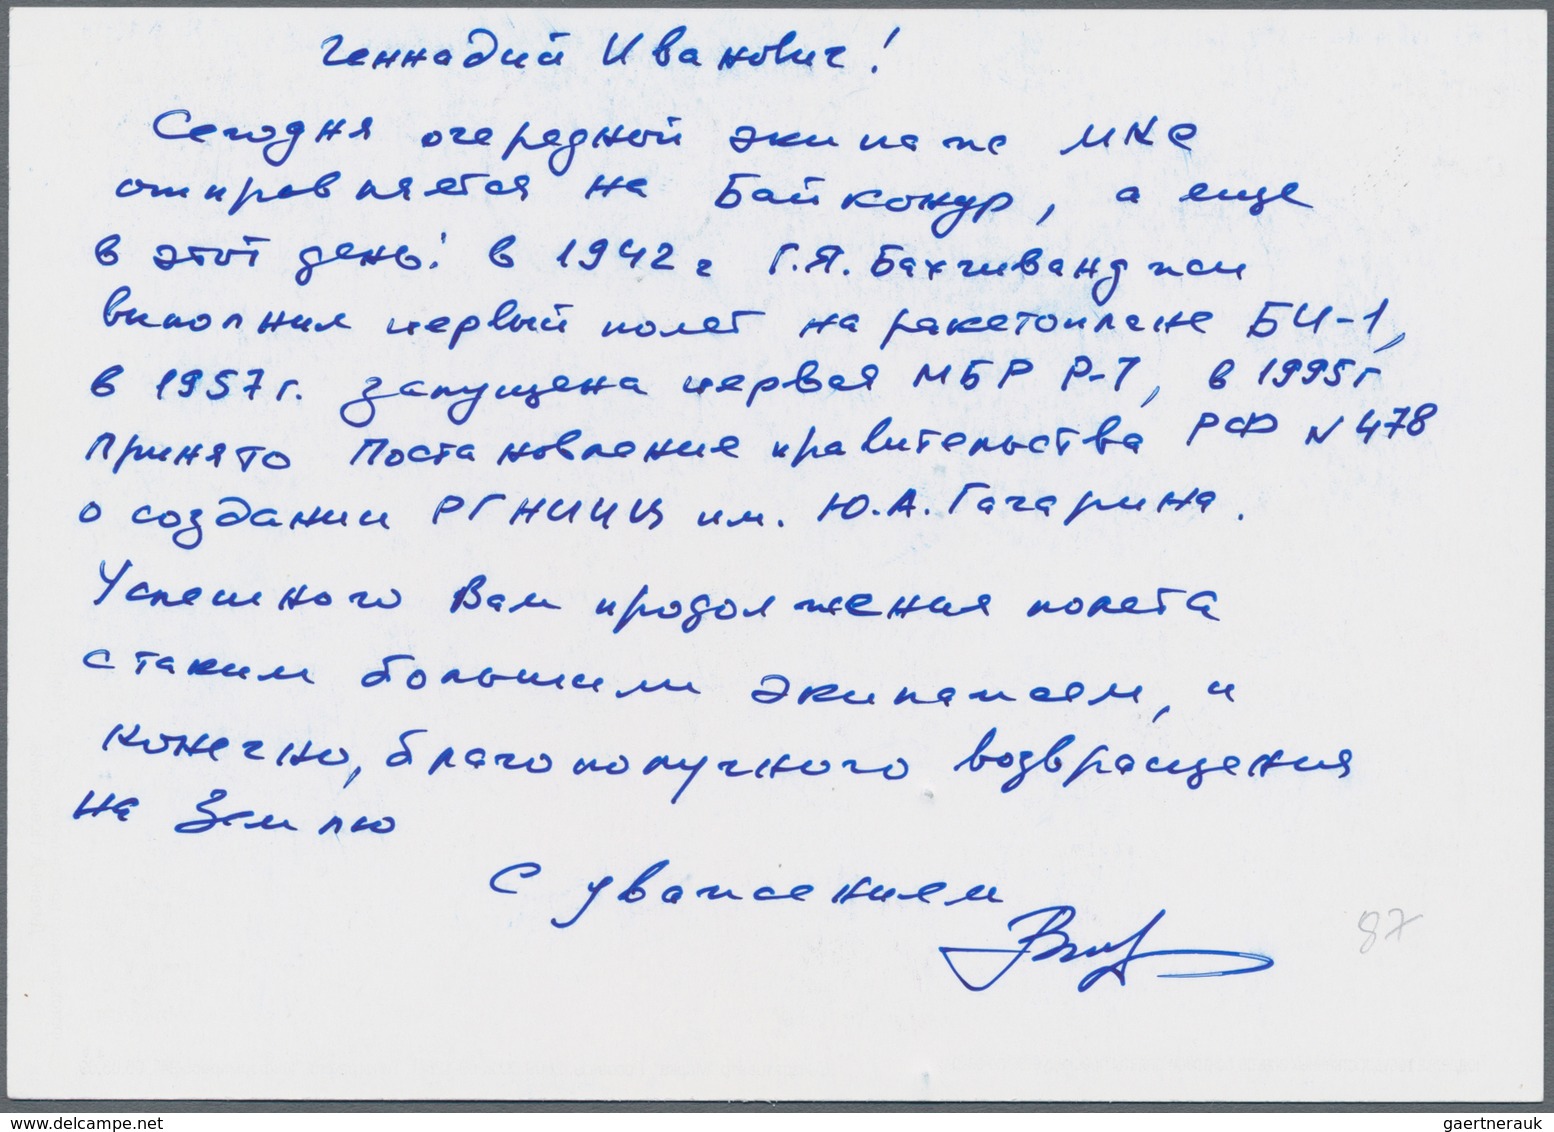 Геннадий Иванович!
Сегодня очередной экипаж МКС
отправляется на Байконур, а еще
в этот день: в 1942 г Г.Я. Бахчиванджи
выполнил первый полет на ракетоплане БИ-1,
в 1957г. запущена первая МБР Р-7, в 1995г
принято Постановление правительства РФ N 478
о создании РГНИИЦ им. Ю.А. Гагарина.
Успешного Вам продолжения полета
с таким большим экипажем, и
конечно, благополучного возвращения
на Землю
С уважением
87
gaertnerauk @ delcampe.net